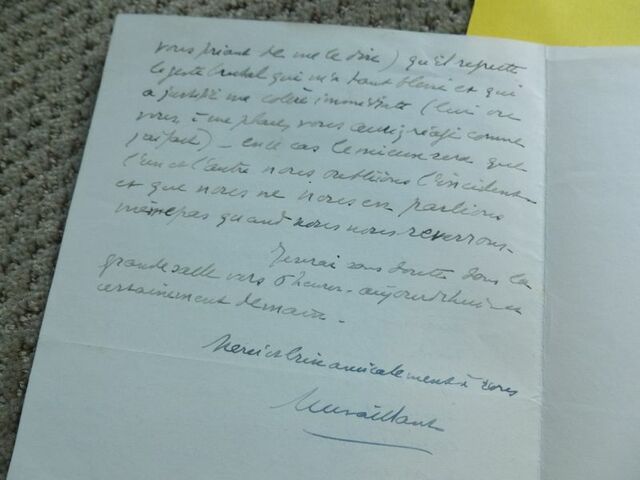 vous priant de me le dire) qu'il regrette
le geste brutal qui m'a tant blessé et qui
a justifié ma colère immédiate (lui ou
vous à ma place, vous auriez réagi comme
j'ai fait) – en ce cas le mieux sera que
l'un et l'autre nous oubliions l'incident
et que nous ne nous en parlions
même pas quand nous nous reverrons –
Je serai sans doute dans la
grande salle vers 6 heures – aujourd'hui –
certainement demain –
Merci et bien amicalement à vous